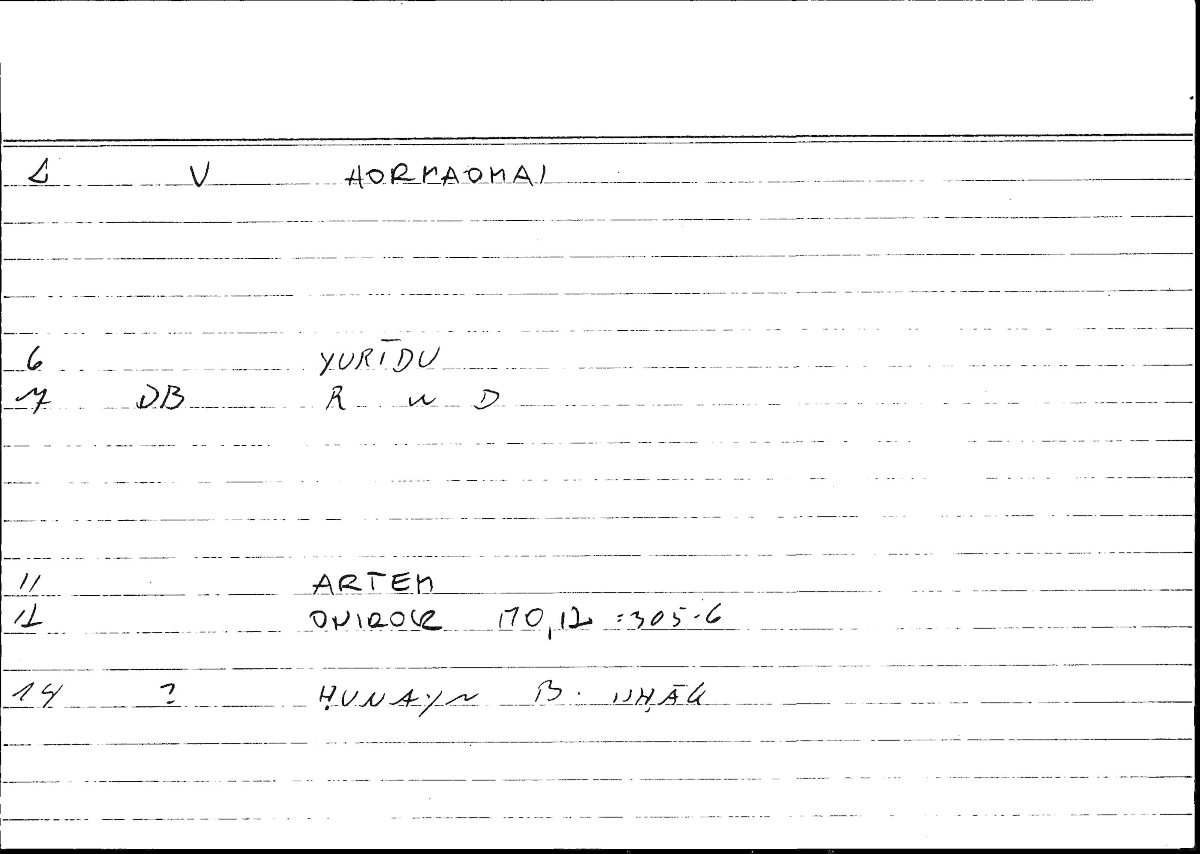 1 V HORMAOMAI
6 YURĪDU
7 DB R W D
11 ARTEM
12 ONIROCR 170,12 =305.6
14 ? ḤUNAYN B. ISḤĀQ